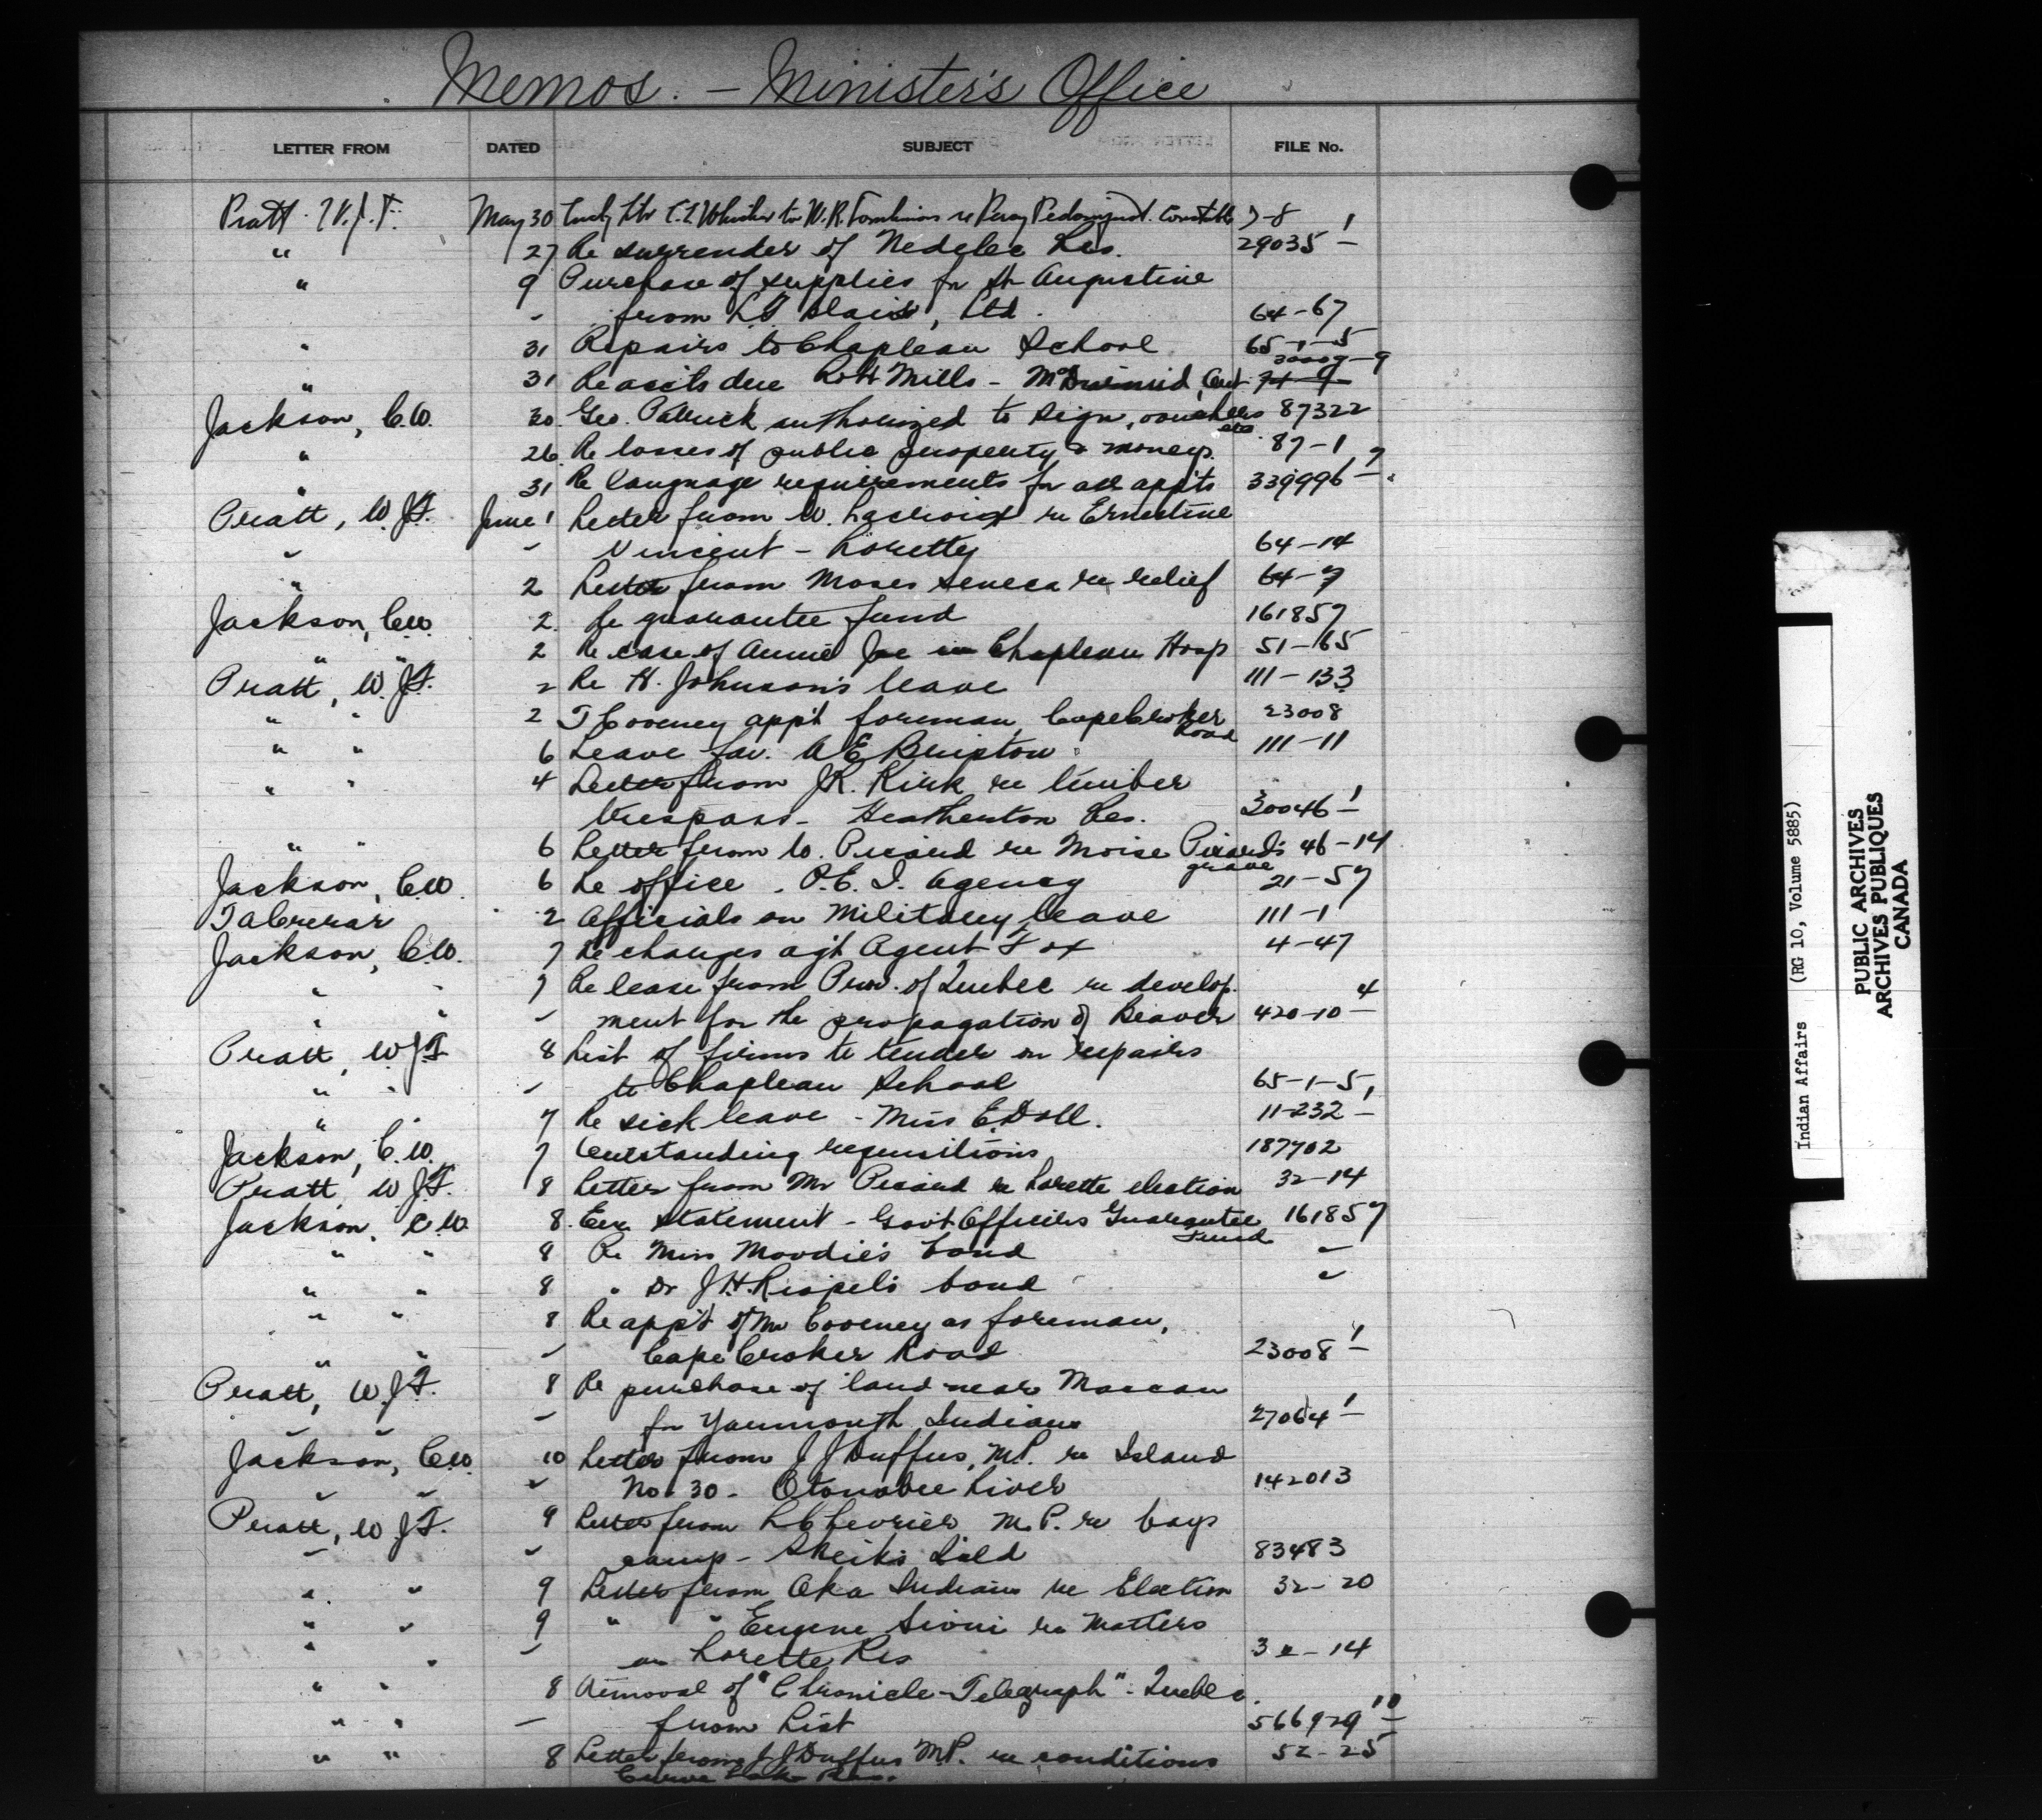 Memos. - Minister's Office
LETTER FROM DATED SUBJECT FILE No.
Pratt W.J.F. May 30 to W.R. Tomlinson re Constable 7-8 1
" 27 Re surrender of Nedelec Res. 29035 -
" 9 Purchase of supplies for St Augustine
- from Ltd. 64-67
" 31 Repairs to Chapleau School 65-1-5
30009-9
" 31 Re accts due Robt Mills - Ont 71-9
Jackson, C.W. 30. Geo. Patrick authorized to sign, vouchers 87322
etc
" 26. Re losses of public property & moneys. 87-1
" 31 Re language requirements for all appts 339996 7
Pratt, W.J.F. June 1 Letter from W. Lacroix re Ernestine
" - Vincent - Loretty 64-14
" 2 Letter from Moses Seneca re relief 64-7
Jackson, C.W. 2. Re guarantee fund 161857
" " 2 Re case of Annie Joe in Chapleau Hosp 51-165
Pratt, W.J.F. 2 Re H. Johnson's leave 111-133
" " 2 T Cooney app't foreman, Cape Croker 23008
Road
" " 6 Leave fav. A E 111-11
" " 4 Letter from J.R. Kirk re timber
trespass - Heatherton Res. 30046 1
" " 6 Letter from W. Picard re Moise Picard's 46-14
grave
Jackson, C.W. 6 Re office, P.E.I. Agency 21-57
T A Crerar 2 Officials on Military leave 111-1
Jackson, C.W. 7 Re changes agt Agent Fox 4-47
" " 7 Re lease from Prov. of Quebec re develop-
" " - ment for the propagation of Beaver 420-10 4
Pratt, W.J.F. 8 List of firms to tender on repairs
" " - to Chapleau School 65-1-5
" " 7 Re sick leave - Miss E. Doll. 11-232 1
Jackson, C.W. 7 Outstanding requisitions 187702
Pratt, W.J.F. 8 Letter from Mr Picard re Lorette election 32-14
Jackson, C.W. 8. statement - Gov't Officers Guarantee 161857
Fund
" " 8 Re Miss Moodie's bond "
" " 8 " Dr J.H. Riopel's bond "
" " 8 Re app't of Mr Cooney as foreman,
" " - Cape Croker Road 23008 1
Pratt, W.J.F. 8 Re purchase of land near Maccan
" " - for Yarmouth Indians 27064 1
Jackson, C.W. 10 Letter from J J Duffus, M.P. re Island
" " " No. 30 - Otonabee River 142013
Pratt, W.J.F. 9 Letter from L Chevrier M.P. re boys
" " camp - Sheiks Isld 83483
" " 9 Letter from Oka Indians re Election 32-20
" " 9 " " Eugene Sioui re Matters
" " - on Lorette Res 32-14
" " 8 Removal of "Chronicle-Telegraph" - Quebec
" " - from List 566929 10
" " 8 Letter from J J Duffus M.P. re conditions 52-25
Curve Lake Res.
Indian Affairs (RG 10, Volume 5885)
PUBLIC ARCHIVES
ARCHIVES PUBLIQUES
CANADA